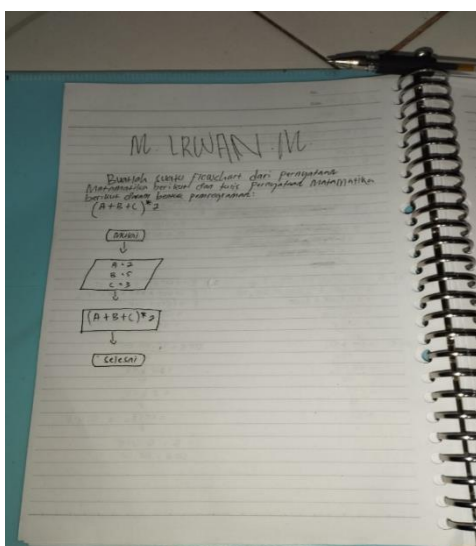 M. IRWAN. M
Buatlah suatu flowchart dari pernyataan
Matematika berikut dan tulis pernyataan matematika
berikut dalam bentuk pemrograman:
(A+B+C)*2
A = 2
B = 5
C = 3
(A+B+C)*2
Selesai